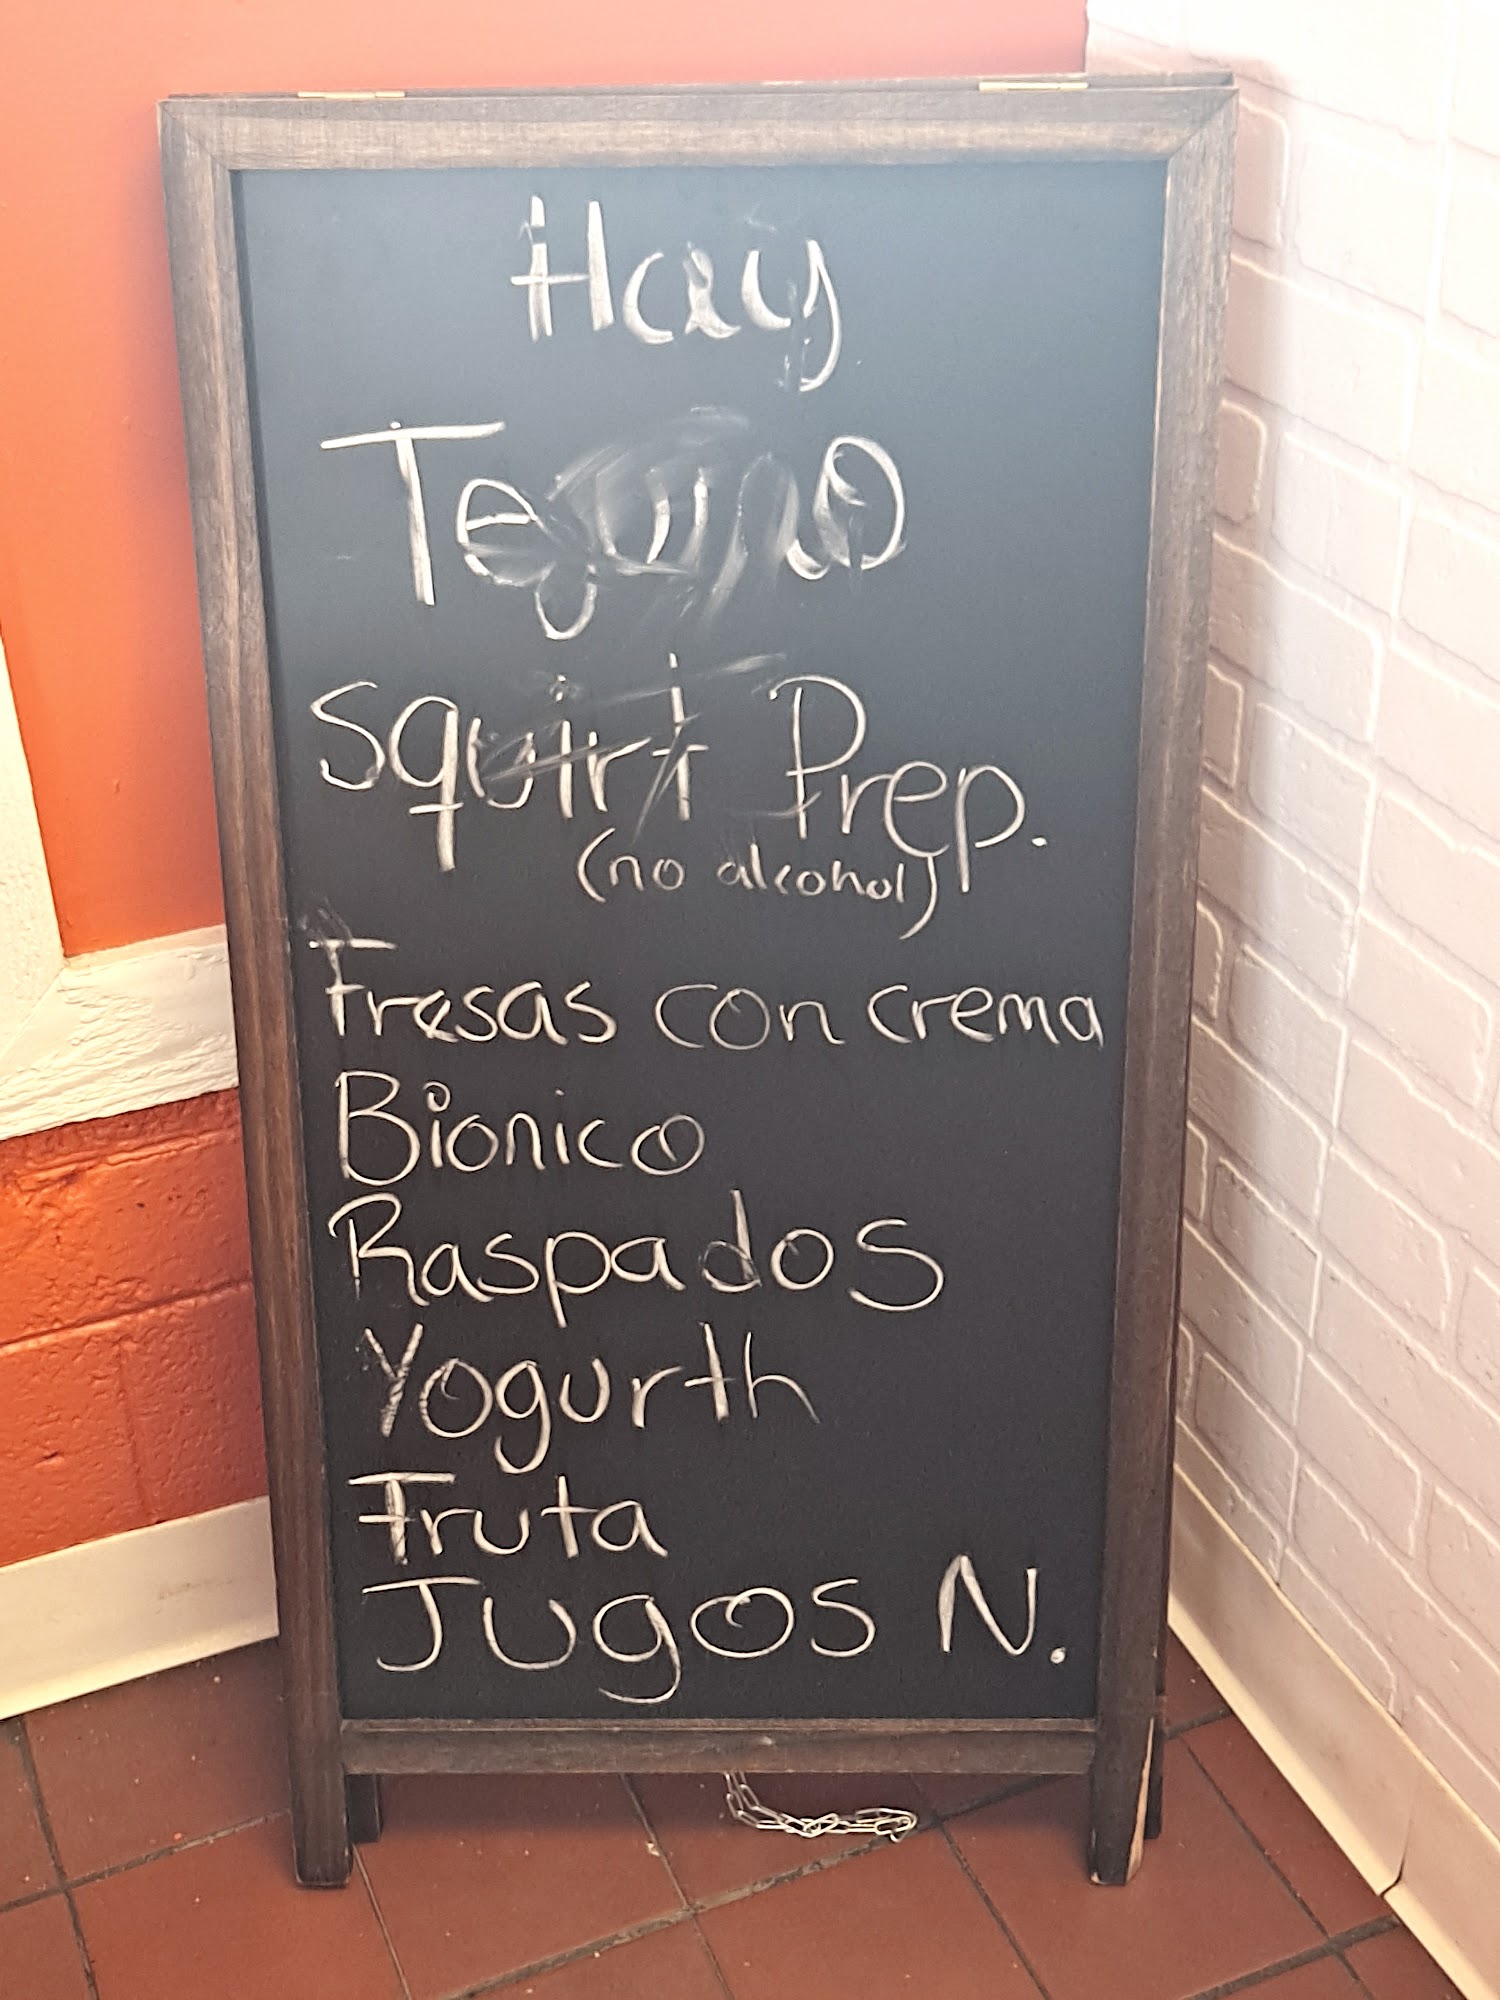 Hay
Tejuino
Squirt Prep.
(no alcohol)
Fresas con crema
Bionico
Raspados
Yogurth
Fruta
Jugos N.